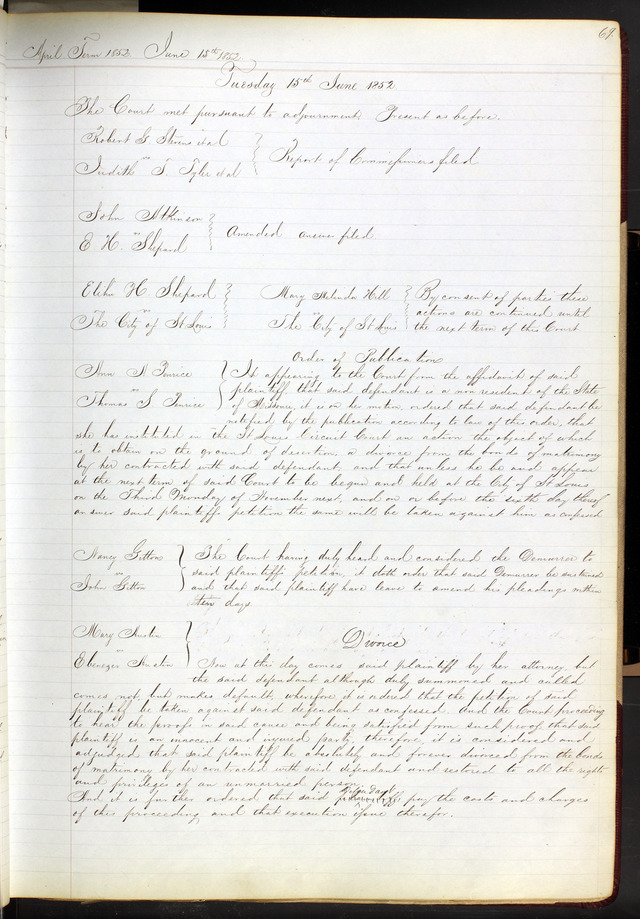 69.
April Term 1852. June 15th 1852.
Tuesday 15th June 1852
The Court met pursuant to adjournment. Present as before.
Robert G. Stevens et al
vs
Judith S. Tyler et al
Report of Commissioners filed
John Atkinson
vs
E. H. Shepard
Amended answer filed.
Elihu H. Shepard
vs
The City of St Louis
Mary Melinda Hill
vs
The City of St Louis
By consent of parties these
actions are continued until
the next term of this Court
Order of Publication
Ann A
vs
Thomas S
It appearing to the Court from the affidavit of said
plaintiff, that said defendant is a non resident of the State
of Missouri, it is on her motion, ordered that said defendant be
notified by the publication according to law of this order, that
she has instituted in the St Louis Circuit Court an action the object of which
is to obtain on the ground of desertion, a divorce from the bonds of matrimony
by her contracted with said defendant, and that unless he be and appear
at the next term of said Court to be begun and held at the City of St Louis
on the Third Monday of November next, and on or before the sixth day thereof
answer said plaintiffs petition the same will be taken against him as confessed
Nancy Gitton
vs
John Gitton
The Court having duly heard and considered the Demurrer to
said plaintiffs petition, it doth order that said Demurrer be sustained
and that said plaintiff have leave to amend his pleadings within
ten days
Mary Austin
vs
Ebenezer Austin
Divorce
Now at this day comes said plaintiff by her attorney but
the said defendant although duly summoned and called
comes not, but makes default, wherefore it is ordered that the petition of said
plaintiff be taken against said defendant as confessed. And the Court proceeding
to hear the proof in said cause and being satisfied from such proof that said
plaintiff is an innocent and injured party, therefore, it is considered and
adjudged that said plaintiff be absolutely and forever divorced from the bonds
of matrimony by her contracted with said defendant and restored to all the rights
and privileges of an unmarried person.
And it is further ordered that said defendant pay the costs and charges
of this proceeding and that execution issue therefor.